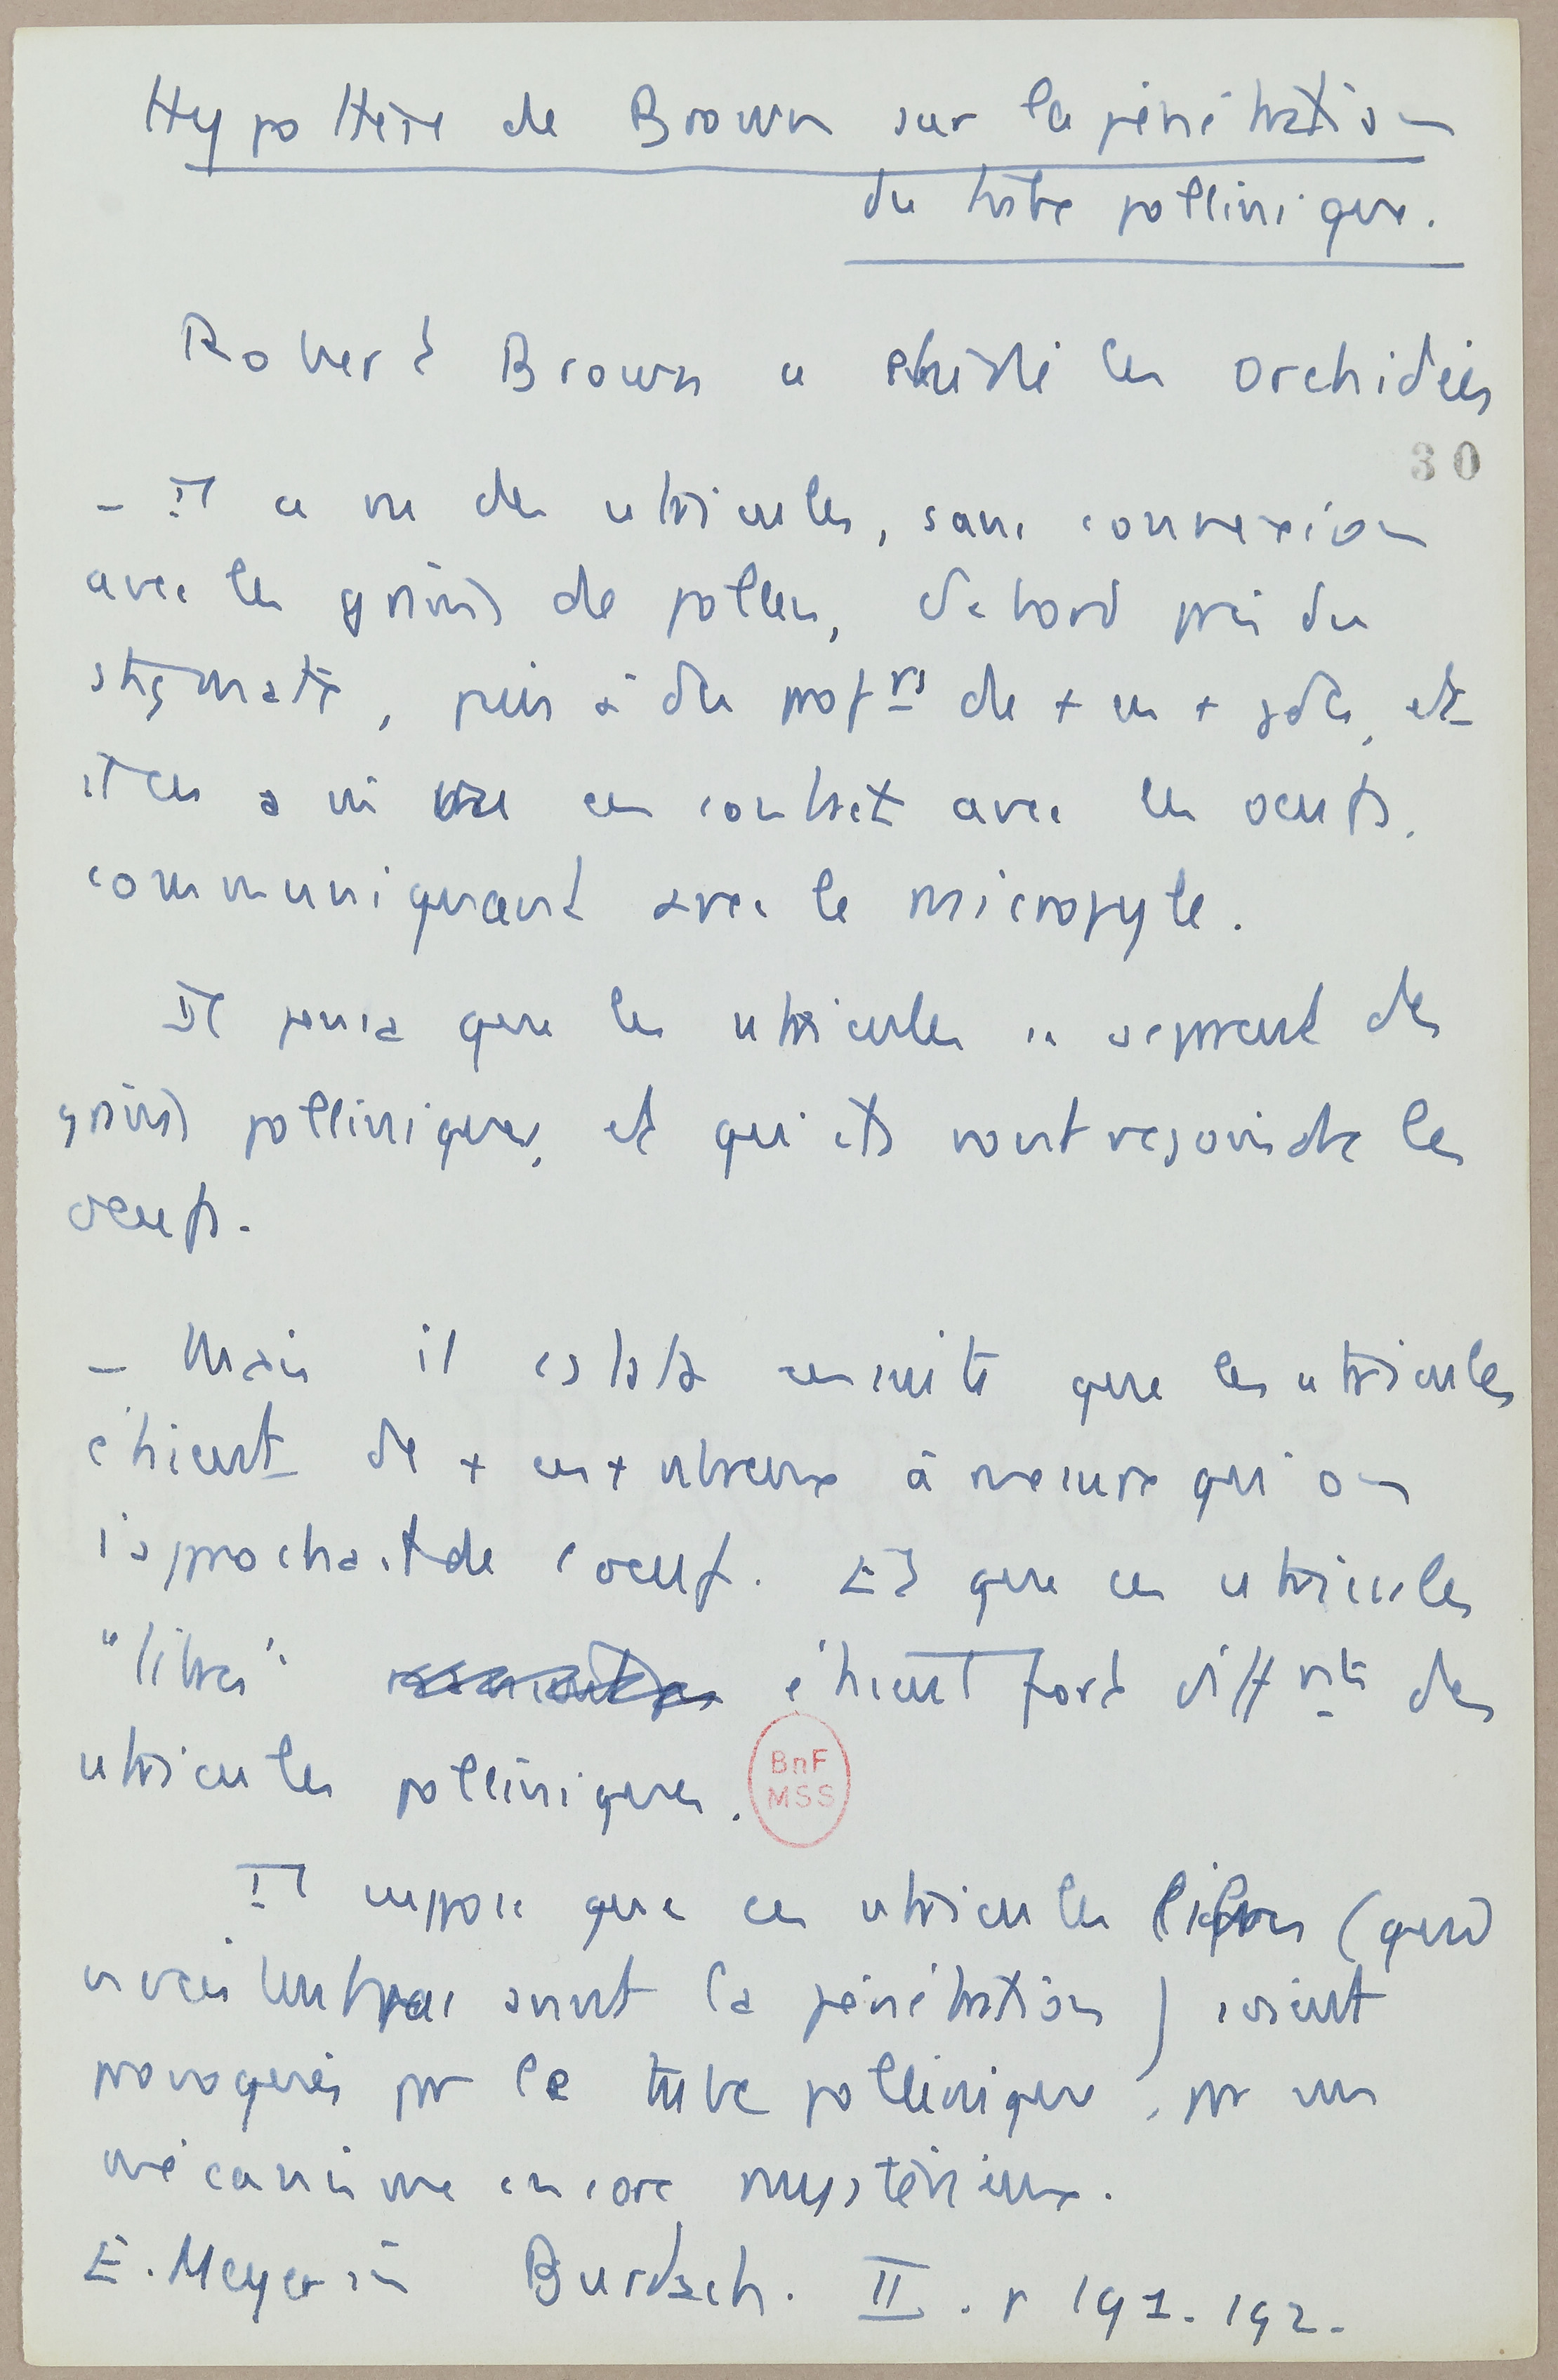 Hypothèse de Brown sur la pénétration
du tube pollinique.
Robert Brown a étudié les orchidées
30
- Il a vu des utricules, sans connexion
avec les grains de pollen, d'abord près du
stigmate, puis à des prof rs de + en + gdes, et
il en a vu en contact avec les oeufs,
communiquant avec le micropyle.
Il pensa que les utricules se séparent des
grains polliniques, et qu'ils vont rejoindre les
oeufs.
- Mais il constata ensuite que les utricules
étaient de + en + nbreux à mesure qu'on
s'approchait de l'oeuf. Et que ces utricules
"libres" étaient fort diff rts des
utricules polliniques.
BnF
MSS
Il suppose que ces utricules libres (qui
n'existent pas avant la pénétration) soient
provoqués par le tube pollinique, par un
mécanisme encore mystérieux.
E. Meyer in Burdach. II. p 191-192.